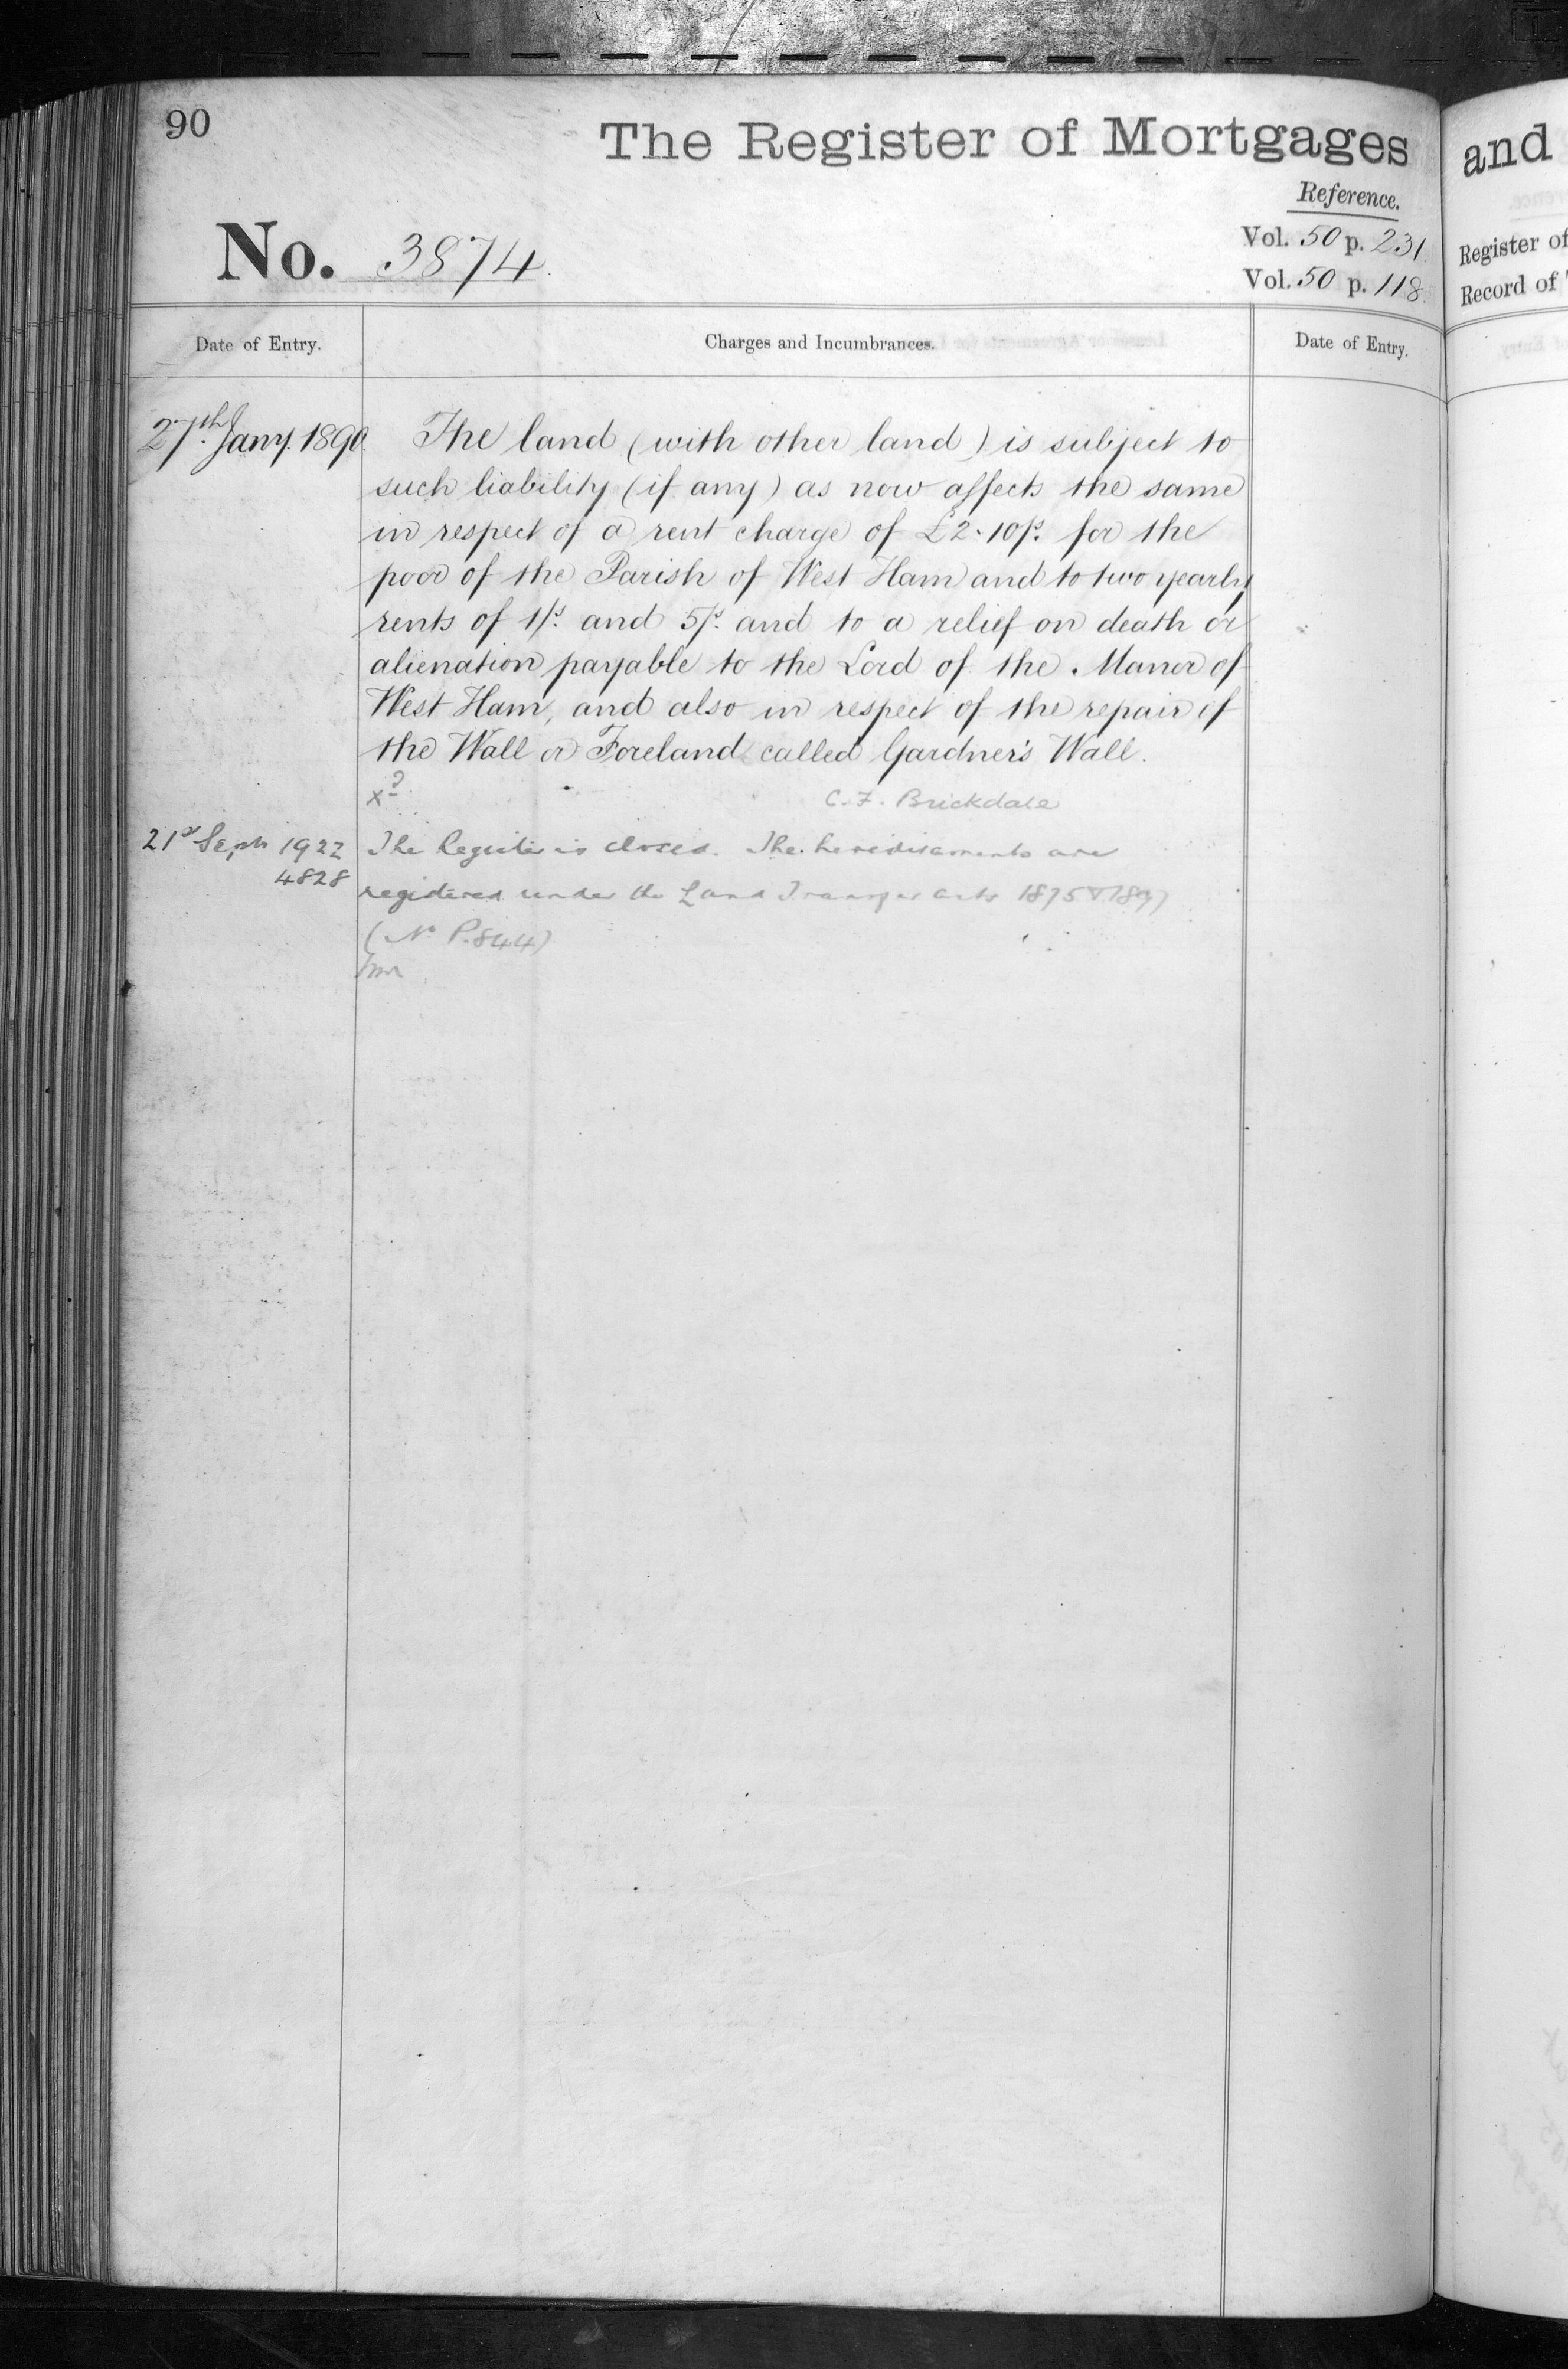 90
The Register of Mortgages
Reference.
No. 3874.
Vol. 50 p. 231.
Vol. 50 p. 118.
Date of Entry.
Charges and Incumbrances.
Date of Entry.
27th. Jany. 1890.
The land (with other land) is subject to
such liability (if any) as now affects the same
in respect of a rent charge of £2.10/s. for the
poor of the Parish of West Ham and to two yearly
rents of 1/s. and 5/s. and to a relief on death or
alienation payable to the Lord of the Manor of
West Ham, and also in respect of the repair of
the Wall or Foreland called Gardner's Wall.
C. F. Brickdale
21st Septr 1922
4828
The Register is closed. The hereditaments are
registered under the Land Transfer Acts 1875 & 1897
(No P.844)
and
Register of
Record of